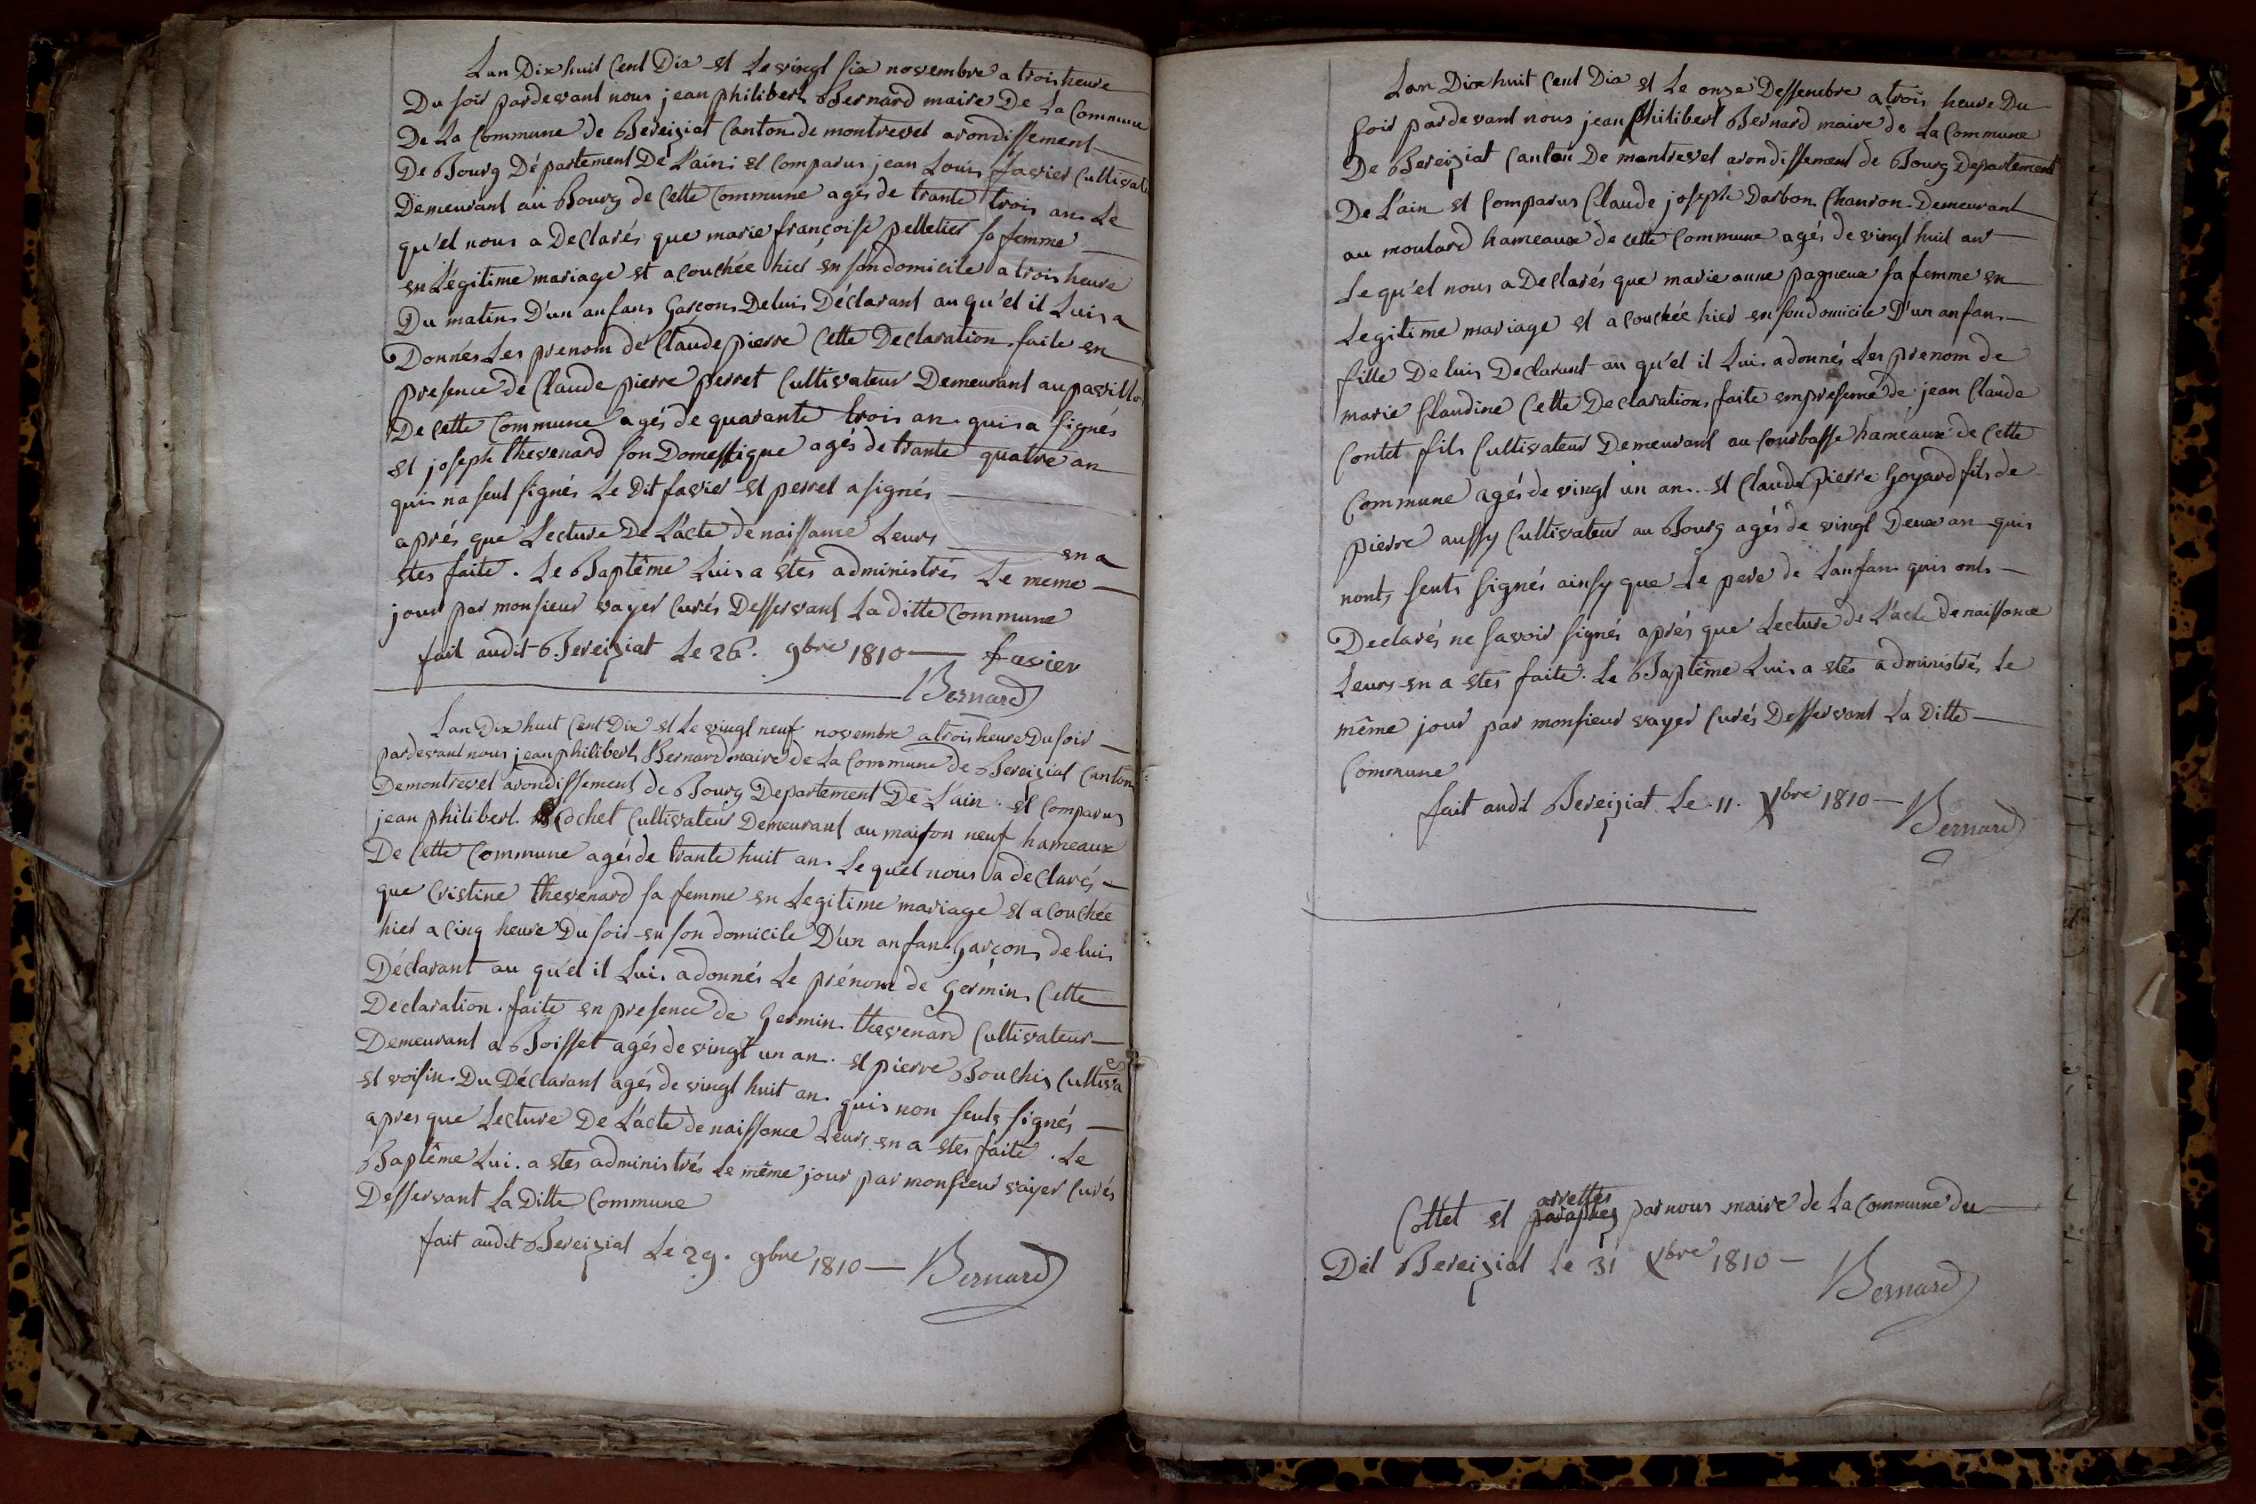 Lan Dix huit Cent Dix et Le vingt six novembre a trois heure
Du soir pardevant nous jean philibert Bernard maire De La Commune
De La Commune de Bereiziat Canton de montrevel arondissement
De Bourg Département De L'ain et Comparus jean Louis favier Cultivate
Demeurant au Bourg de Cette Commune agés de trante trois an Le
qu'el nous a Declarés que marie françoise pelletier sa femme
en Légitime mariage et acouchée hier en son domicile a trois heure
Du matin D'un anfans Garçons De luis Déclarant au qu'el il Luis a
Donnés Les prenom de Claude pierre Cette Declaration faite en
presence de Claude pierre perret Cultivateur Demeurant au pavillo
De Cette Commune agés de quarante trois an quis a signés
et joseph thevenard son Domestique agés de trante quatre an
quis na seut signés Le Dit favier et perret a signés
aprés que Lecture De L'acte de naissance Leurs en a
etes faite. Le Baptême Luis a etes administrés Le meme
jour par monsieur vayer Curés Desservant La ditte Commune
fait audit Bereiziat Le 26. 9bre 1810 favier
Bernard
Lan Dix huit Cent Dix et Le vingt neuf novembre a trois heure Du soir
pardevant nous jean philibert Bernard maire de La Commune de Bereiziat Canton
De montrevel arondissement de Bourg Departement De L'ain et Comparus
jean philibert Cochet Cultivateur Demeurant au maison neuf hameaux
De Cette Commune agés de trante huit an Le quel nous a declarés
que Cristine thevenard sa femme en Legitime mariage et acouchée
hier a Cinq heure Du soir en son domicile D'un anfan Garçons de luis
Déclarant au qu'el il Luis a donnés Le prénom de Germin Cette
Declaration faite en presence de Germin thevenard Cultivateur
Demeurant a Boisset agés de vingt un an. et pierre Bouchis Cultiva
et voisin Du Déclarant agés de vingt huit an quis non seuts signés
apres que Lecture De L'acte de naissance Leurs en a etes faite. Le
Baptême Lui. a etes administrés Le même jour par monsieur vayer Curés
Desservant La Ditte Commune
fait audit Bereiziat Le 29. 9bre 1810 Bernard
Lan Dix huit Cent Dix et Le onze Dessembre a trois heure Du
soir pardevant nous jean Philibert Bernard maire de La Commune
De Bereiziat Canton De montrevel arondissement de Bourg Departement
De L'ain et Comparus Claude joseph Darbon Charron Demeurant
au moulard hameaux de cette Commune agés de vingt huit an
Le qu'el nous a Declarés que marie anne pagneux sa femme en
Legitime mariage et acouchée hier en son domicile D'un anfan
fille De luis Declarant au qu'el il Luis a donnés Les prenom de
marie Claudine Cette Declaration faite empresence de jean Claude
Contet fils Cultivateur Demeurant au Courbasse hameaux de Cette
Commune agés de vingt un an. et Claude Pierre Goyard fils de
pierre aussy Cultivateur au Bourg agés de vingt Deux an quis
nonts seuts signés ainsy que Le pere de Lanfan quis onts
Declarés ne savoir signés aprés que Lecture de L'acte de naissance
Leurs en a etes faite. Le Baptême Luis a etes administrés Le
même jour par monsieur vayer Curés Desservant La Ditte
Commune
fait audit Bereiziat Le 11. Xbre 1810 Bernard
arrettes
Cottet et paraphez par nous maire de La Commune du
Dit Bereiziat Le 31 Xbre 1810
Bernard